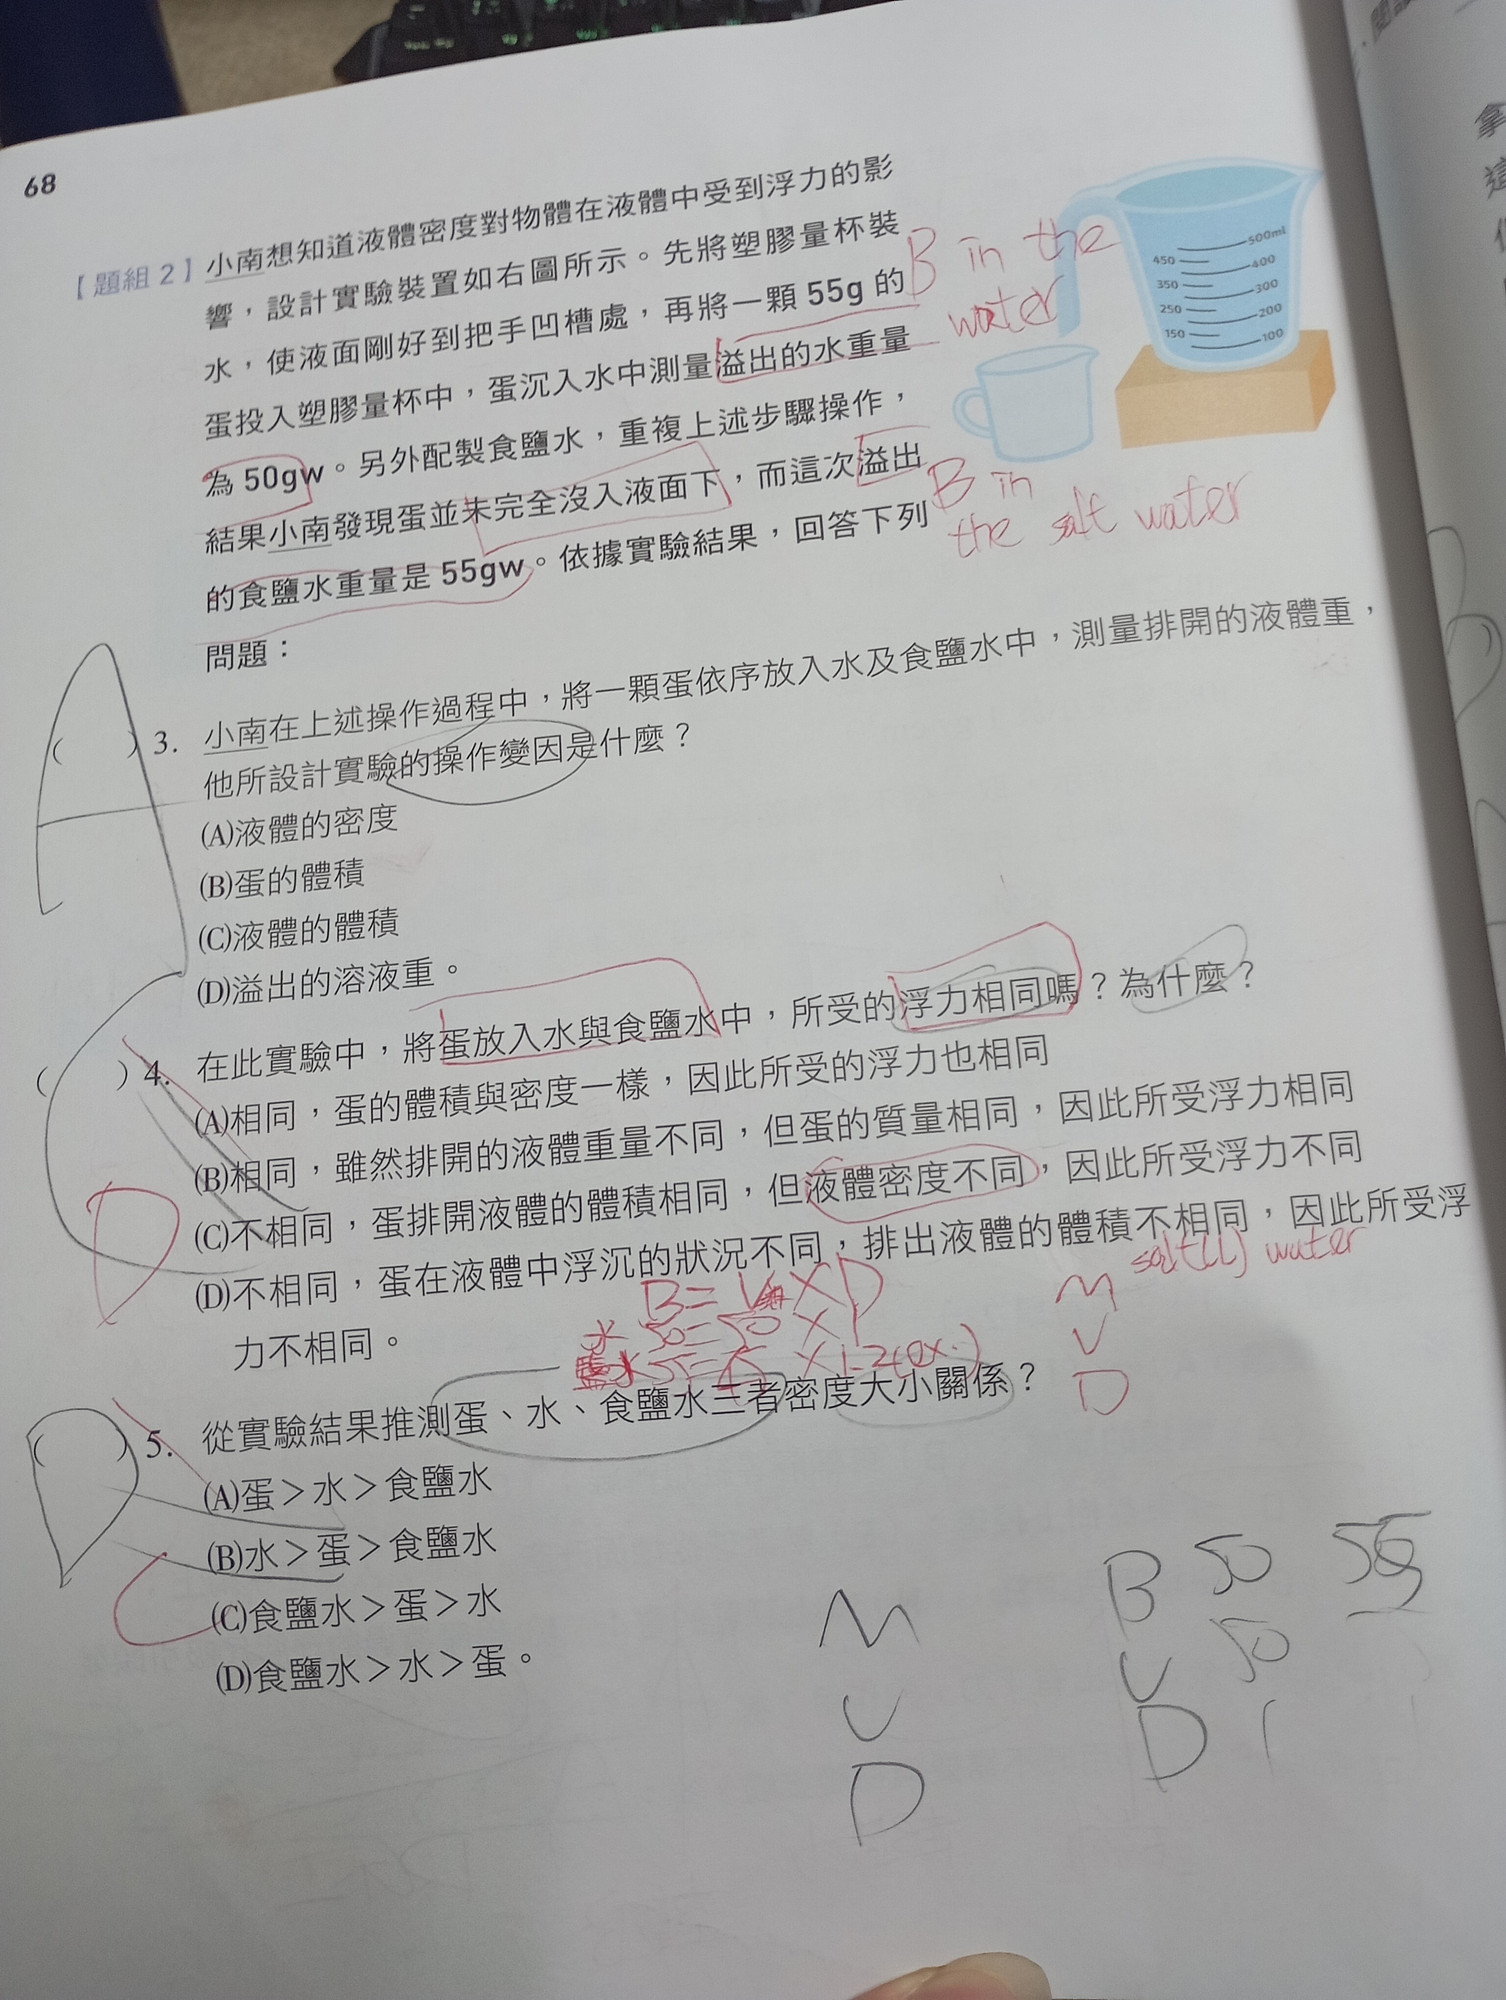 68
【題組 2】小南想知道液體密度對物體在液體中受到浮力的影
響，設計實驗裝置如右圖所示。先將塑膠量杯裝
水，使液面剛好到把手凹槽處，再將一顆 55g 的
蛋投入塑膠量杯中，蛋沉入水中測量溢出的水重量
為 50gw。另外配製食鹽水，重複上述步驟操作，
結果小南發現蛋並未完全沒入液面下，而這次溢出
的食鹽水重量是 55gw。依據實驗結果，回答下列
問題：
B in the
water
B in
the salt water
500ml
450
400
350
300
250
200
150
100
A
( )3. 小南在上述操作過程中，將一顆蛋依序放入水及食鹽水中，測量排開的液體重，
他所設計實驗的操作變因是什麼？
(A)液體的密度
(B)蛋的體積
(C)液體的體積
(D)溢出的溶液重。
C
( )4. 在此實驗中，將蛋放入水與食鹽水中，所受的浮力相同嗎？為什麼？
(A)相同，蛋的體積與密度一樣，因此所受的浮力也相同
(B)相同，雖然排開的液體重量不同，但蛋的質量相同，因此所受浮力相同
(C)不相同，蛋排開液體的體積相同，但液體密度不同，因此所受浮力不同
(D)不相同，蛋在液體中浮沉的狀況不同，排出液體的體積不相同，因此所受浮
力不相同。
D
水 50=50 X 1
X 1.2(ex.)
water
M
V
D
( )5. 從實驗結果推測蛋、水、食鹽水三者密度大小關係？
(A)蛋＞水＞食鹽水
(B)水＞蛋＞食鹽水
(C)食鹽水＞蛋＞水
(D)食鹽水＞水＞蛋。
D
C
M
V
D
B 50 55
V 50
D 1